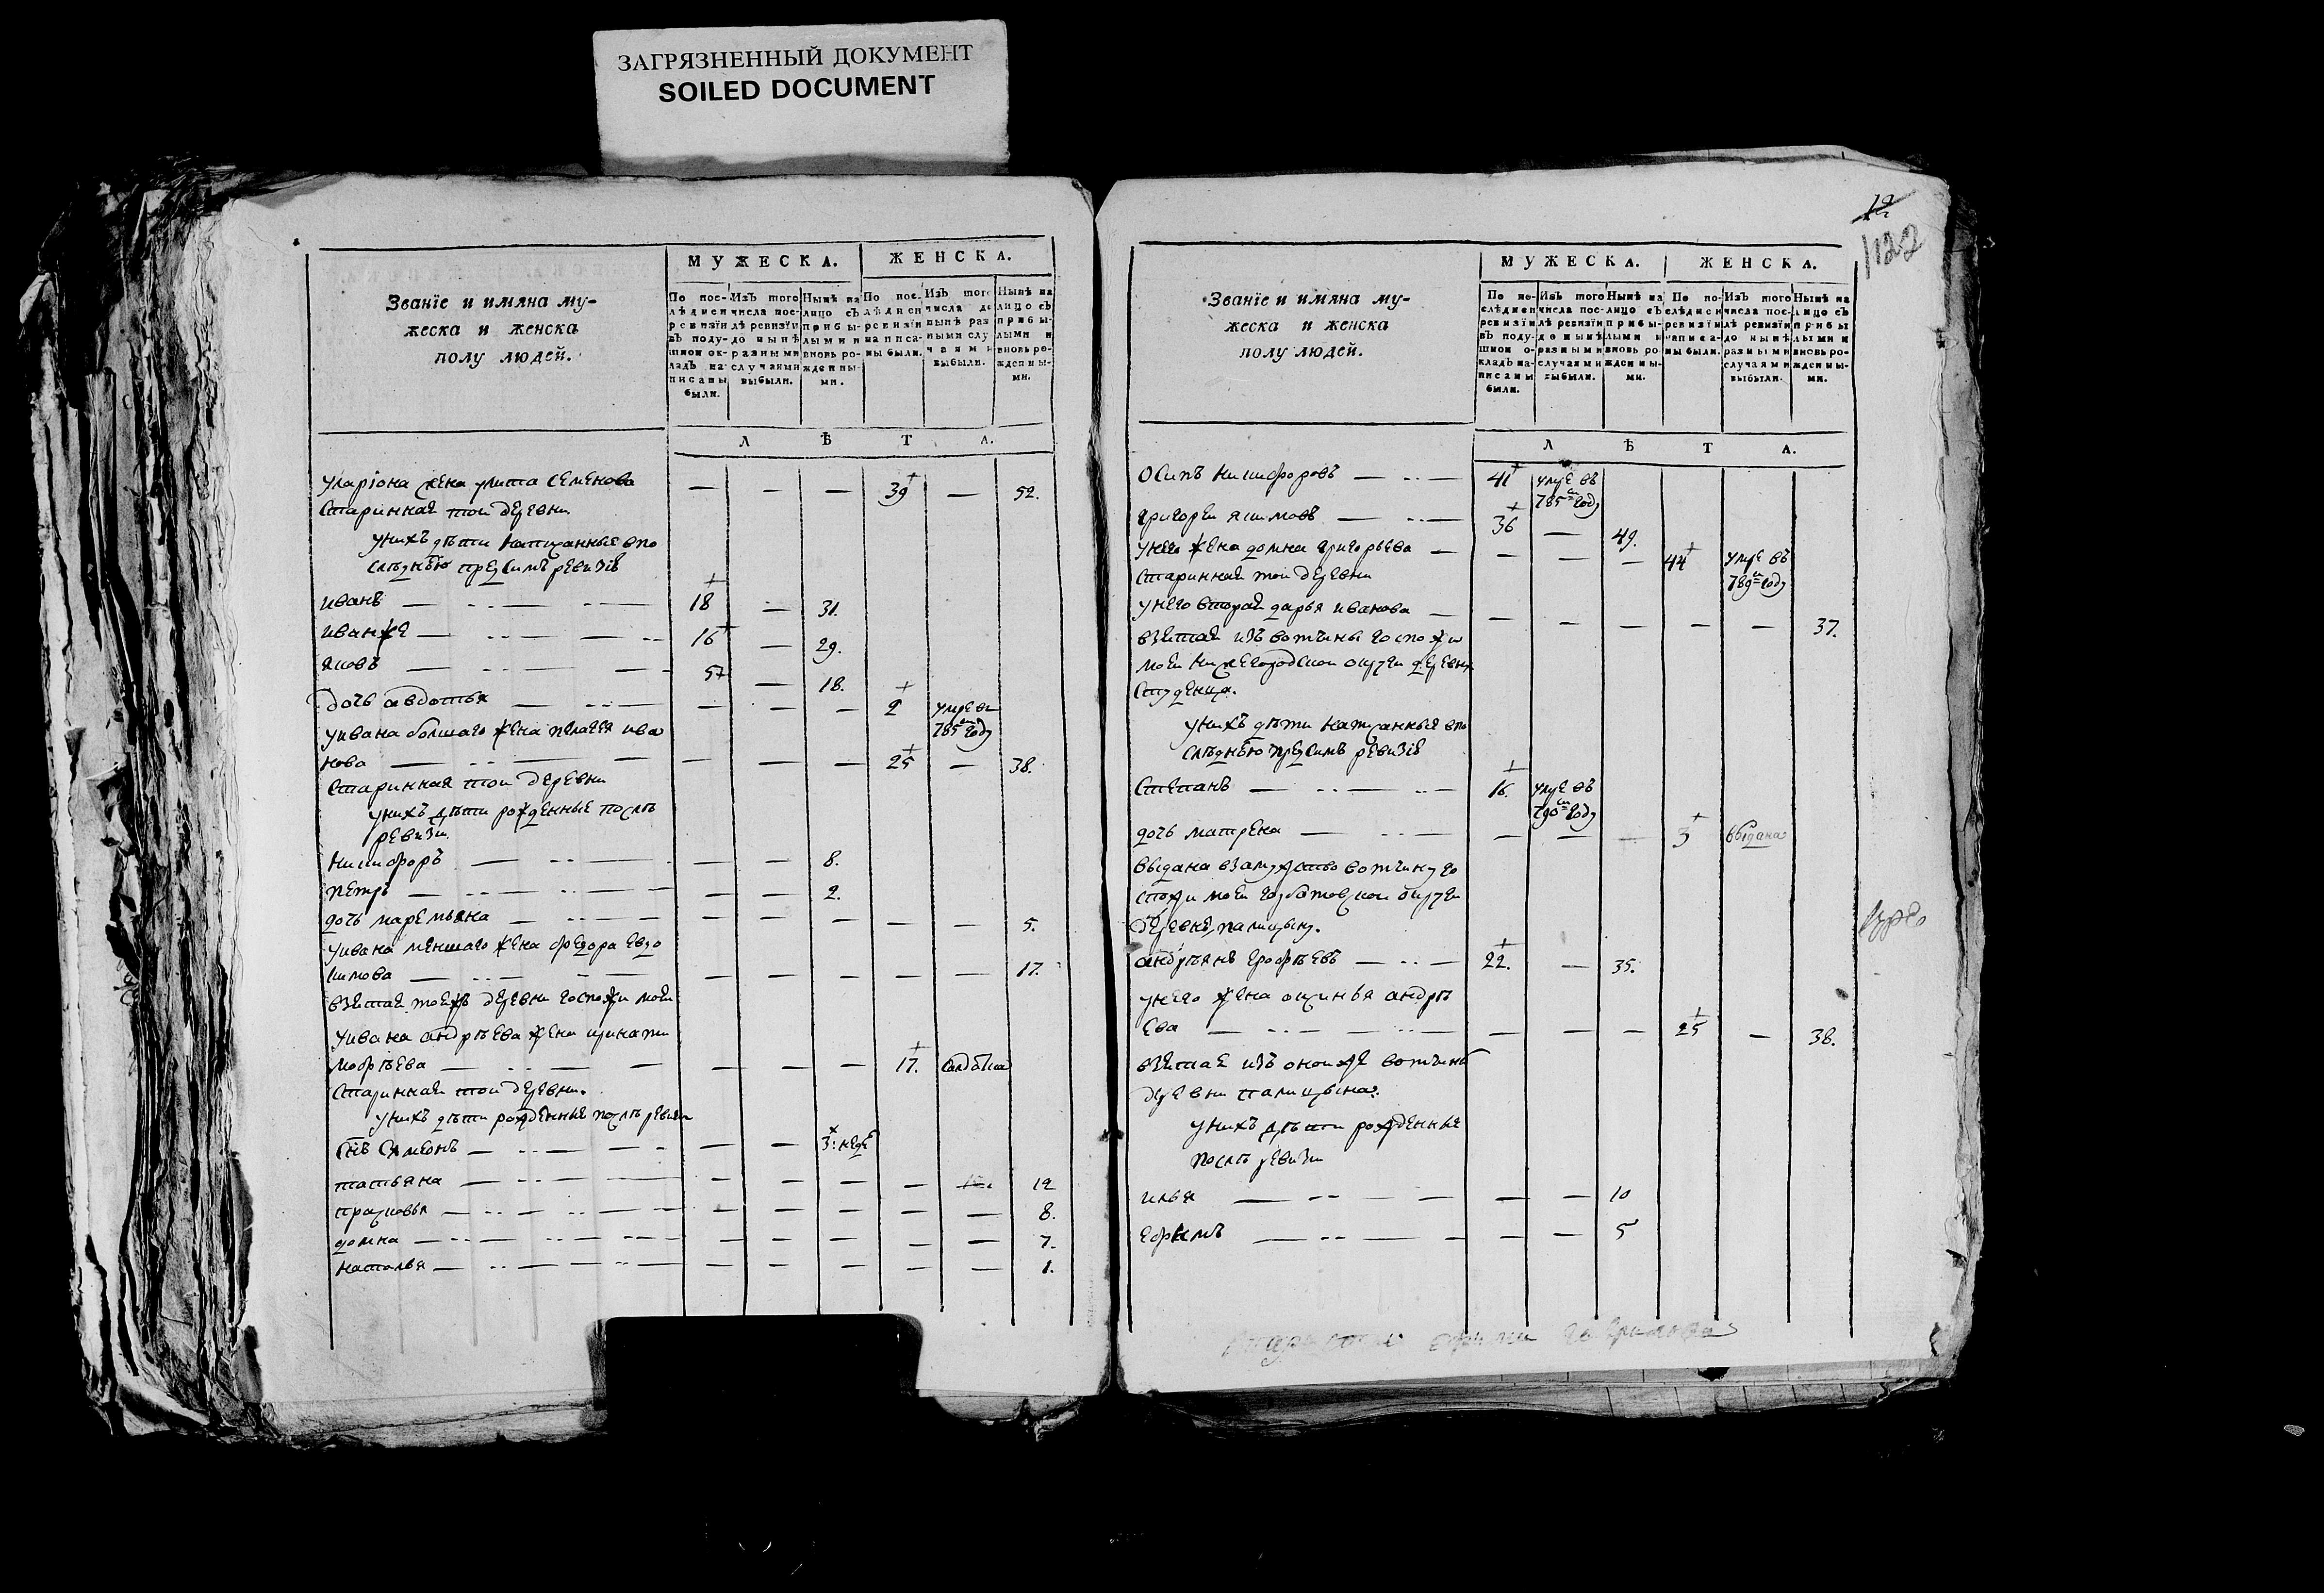 ЗАГРЯЗНЕННЫЙ ДОКУМЕНТ
SOILED DOCUMENT
Званїе и имяна му-
жеска и женска
полу людей.
МУЖЕСКА. ЖЕНСКА.
По пос-
лѣднеи
ревизїи
въ поду-
шном ок-
ладѣ на-
писаны
были.
Изъ того
числа пос-
лѣ ревизїи
до нынѣ
разными
случаями
выбыли.
Нынѣ на
лицо съ
прибы-
лыми и
вновь ро-
жденны-
ми.
По пос-
лѣднеи
ревизїи
написа-
ны были.
Изъ того
числа до
нынѣ раз
ными слу
чаями
выбыли.
Нынѣ на
лицо съ
прибы-
лыми и
вновь ро-
жденны-
ми.
Л Ѣ Т А.
уларіона жена улита семенова — — — 39 — 52.
старинная тои деревни
униxъ дѣти написанные впо
слѣднею предсимъ ревизіе
иванъ 18 — 31.
иванже 16 — 29.
яковъ 5 — 18.
дочь авдотья — — — 2 умре въ 785м году
уивана болшаго жена пелагея ива
нова — — — 25 — 38.
старинная тои деревни
унихъ дѣти рожденные послѣ
ревизи
никифоръ — — 8.
петръ — — 2.
дочь маремьяна — — — — — 5.
уивана меншаго жена федора евдо
кимова — — — — — 17.
взятая тоежъ деревни госпожи моеи
уивана андрѣева жена ирина ти
мофѣева — — — 17.
старинная тои деревни.
унихъ дѣти рожденные послѣ ревизи
снъ симеонъ — — 3: неде
татьяна — — — — 12
прасковья — — — — — 8.
домна — — — — — 7.
наталья — — — — — 1.
12
1122
Званїе и имяна му-
жеска и женска
полу людей.
МУЖЕСКА. ЖЕНСКА.
По по-
слѣднеи
ревизїи
въ поду-
шном о-
кладѣ на-
писаны
были.
Изъ того
числа пос-
лѣ ревизїи
до нынѣ
разными
случаями
выбыли.
Нынѣ на
лицо съ
прибы-
лыми и
вновь ро
жденны-
ми.
По по-
слѣднеи
ревизїи
написа-
ны были.
Изъ того
числа пос-
лѣ ревизїи
до нынѣ
разными
случаями
выбыли.
Нынѣ на
лицо съ
прибы
лыми и
вновь ро-
жденны-
ми.
Л Ѣ Т А.
осипъ никифоровъ 41 умре въ 785м году
григореи якимовъ 36 — 49.
унего жена домна григорьева — — — 44 умре въ 789м году
старинная тои деревни
унего вторая дарья иванова — — — — — 37.
взятая изъ вотчины госпожи
моеи нижегородскои округи деревни
студенца.
унихъ дѣти написанные впо
слѣднею предсимъ ревизіе
степанъ 16. умре въ 790м году
дочь матрена — — — 3 выдана
выдана взамужство вотчину го
спожи моеи горбатовскои округи
деревню палицыну.
андреянъ ерофѣевъ 22. — 35.
унего жена аксинья андрѣ
ева — — — 25 — 38.
взятая изъ оноиже вотчины
деревни палицына.
унихъ дѣти рожденные
послѣ ревизи
илья — — 10
ефимъ — — 5